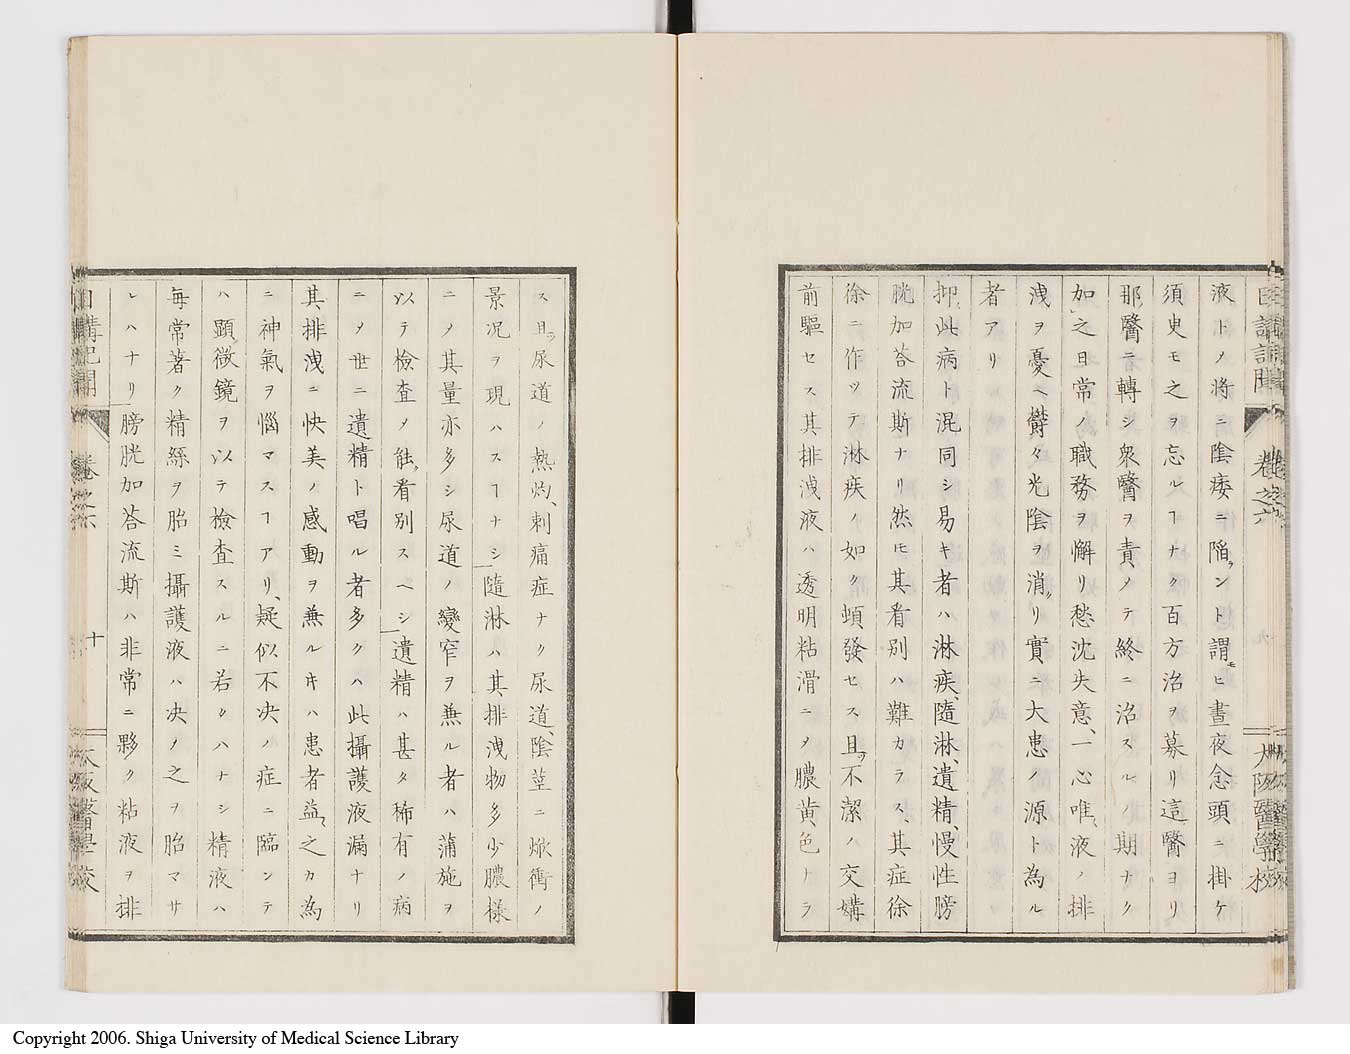 液トノ將ニ陰痿ニ陥ラントト謂ヒ晝夜念頭ニ掛ケ
須臾モ之ヲ忘ルヿナク百方治ヲ募リ這醫ヨリ
那醫ニ轉シ衆醫ヲ責メテ終ニ治スルノ期ナク
加之日常ノ職務ヲ懈リ愁沈失意、一心唯液ノ排
洩ヲ憂ヘ欝々光陰ヲ消リ實ニ大患ノ源ト為ル
者アリ
抑此病ト混同シ易キ者ハ淋疾、隨淋、遺精、慢性膀
胱加荅流斯ナリ然𪜈其看別ハ難カラス、其症徐
徐ニ作ツテ淋疾ノ如ク頓發セス且ツ不潔ノ交媾
前驅セス其排洩液ハ透明粘滑ニノ膿黄色ナラ
大阪醫學校
ス且ツ尿道ノ熱灼、刺痛症ナク尿道、陰莖ニ焮衝ノ
景况ヲ現ハスヿナシ隨淋ハ其排洩物多少膿樣
ニノ其量亦多シ尿道ノ變窄ヲ兼ル者ハ蒲施ヲ
以テ檢査メ能ク看別スヘシ遺精ハ甚タ稀有ノ病
ニメ世ニ遺精ト唱ル者多クハ此攝護液漏ナリ
其排洩ニ快美ノ感動ヲ兼ルキハ患者益々之カ為
ニ神氣ヲ惱マスヿアリ、疑似不决ノ症ニ臨ンテ
ハ顕微鏡ヲ以テ檢査スルニ若クハナシ精液ハ
毎常著ク精絲ヲ胎ミ攝護液ハ决ノ之ヲ胎マサ
レハナリ膀胱加荅流斯ハ非常ニ夥ク粘液ヲ排
日講記聞
卷之六
十
大阪醫學校
Copyright 2006. Shiga University of Medical Science Library